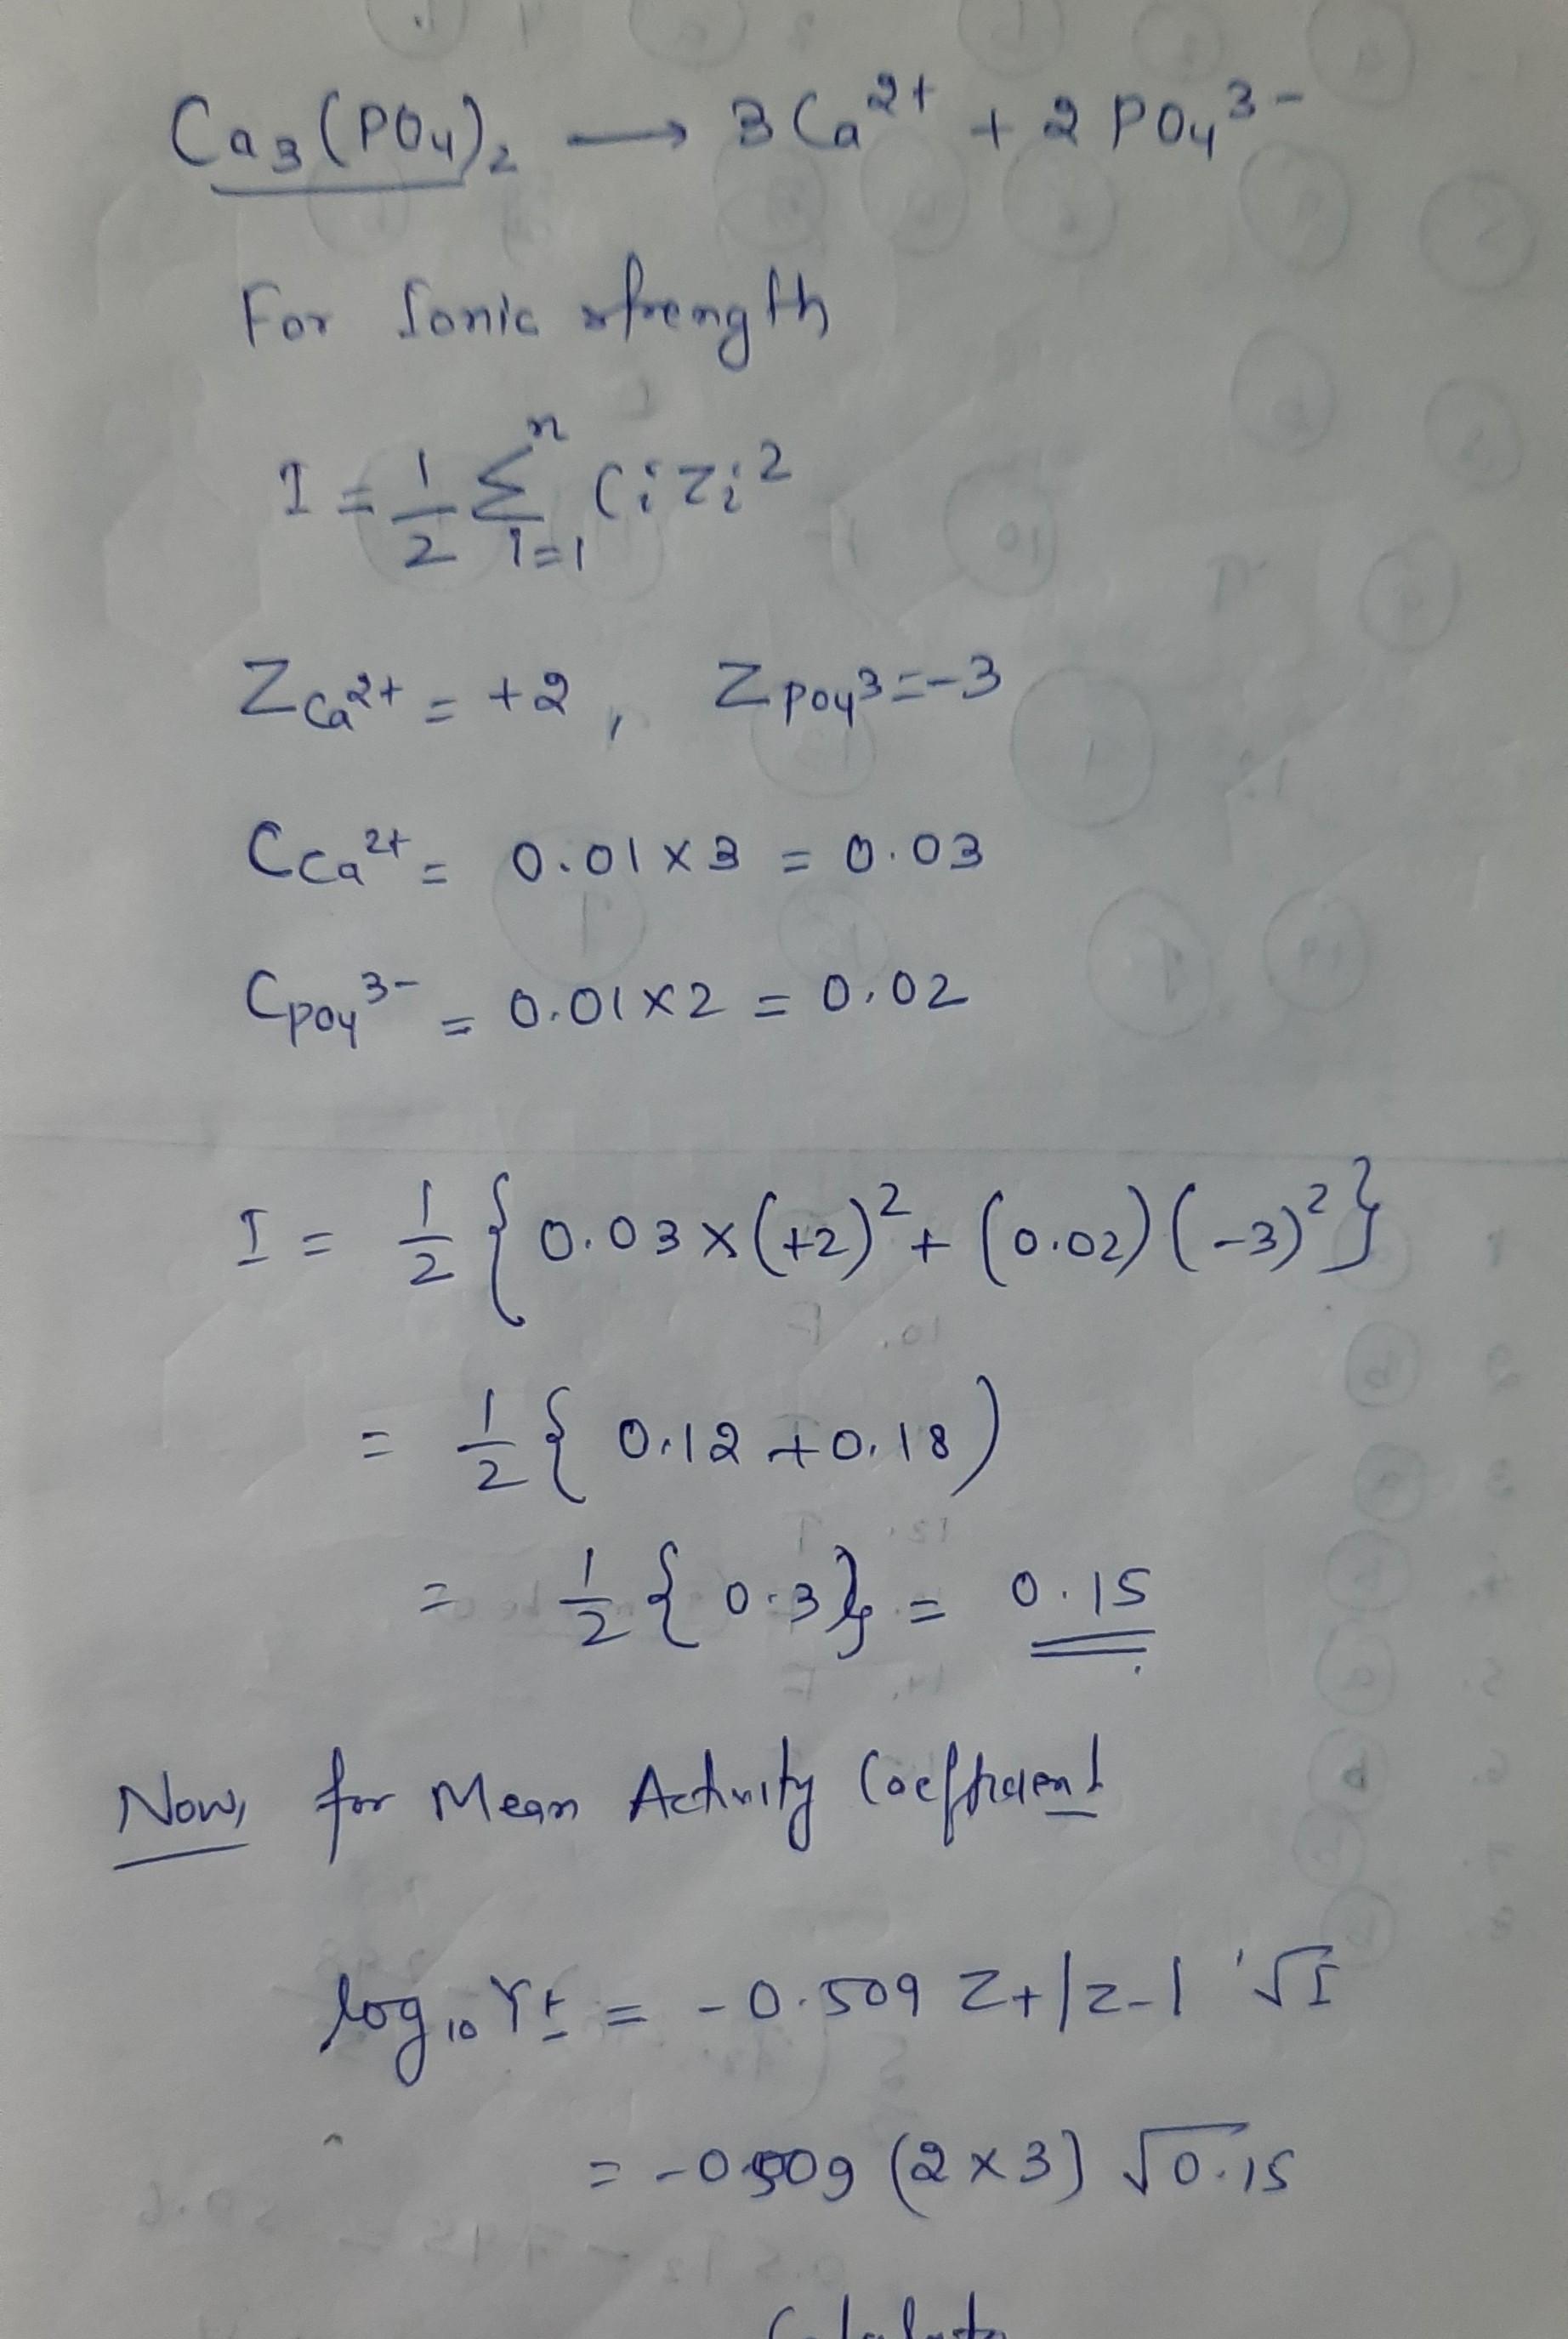 Ca₃(PO₄)₂ → 3Ca²⁺ + 2PO₄³⁻
For Ionic strength
I = 1/2 Σⁿᵢ₌₁ Cᵢ Zᵢ²
Z Ca²⁺ = +2, Z PO₄³ = -3
C Ca²⁺ = 0.01 × 3 = 0.03
C PO₄³⁻ = 0.01 × 2 = 0.02
I = 1/2 { 0.03 × (+2)² + (0.02) (-3)² }
= 1/2 { 0.12 + 0.18 )
= 1/2 { 0.3 } = 0.15
Now, for Mean Activity Coefficient
log₁₀ γ± = -0.509 Z+ |Z-| √I
= -0.509 (2 × 3) √0.15